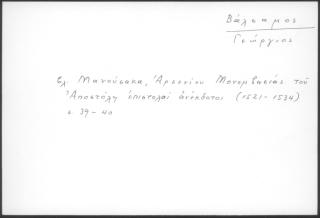 Βάλσαμος
Γεώργιος
Ελ. Μανούσακα, Ἀρσενίου Μονεμβασίας τοῦ
Ἀποστόλη ἐπιστολαὶ ἀνέκδοτοι (1521-1534)
σ. 39-40